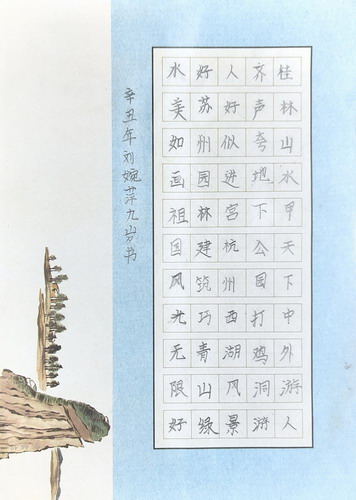 桂林山水甲天下中外游人
齐声夸地下公园打鸡洞游
人好似进宫杭州西湖风景
好苏州园林建筑巧青山绿
水美如画祖国风光无限好
辛丑年刘婉萍九岁书